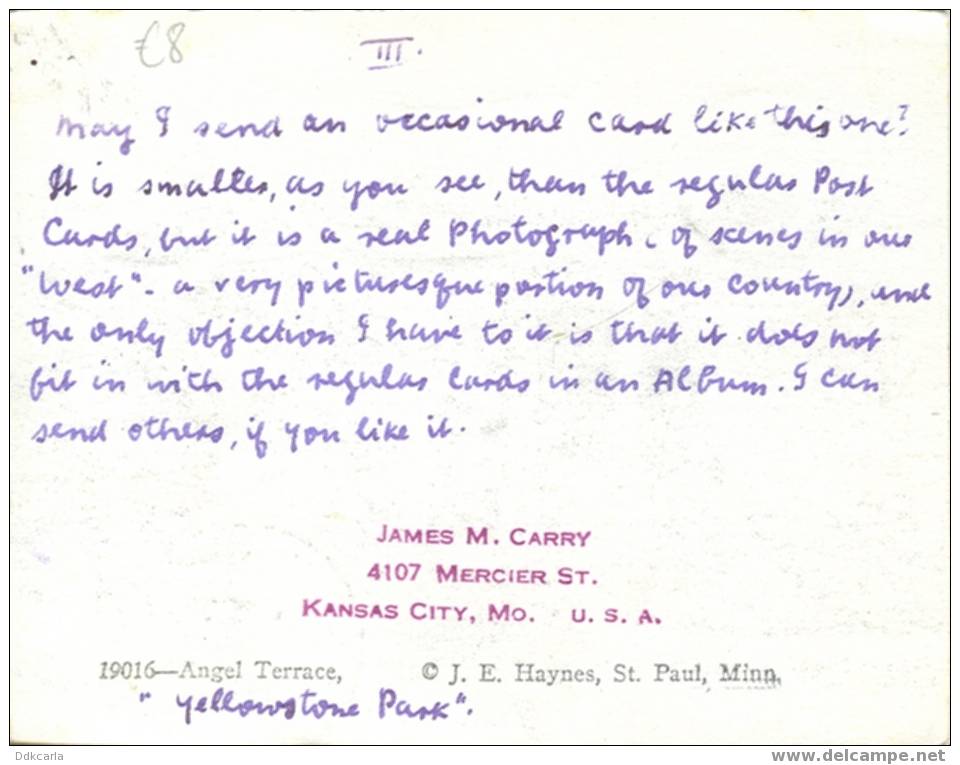 €8
III.
May I send an occasional card like this one?
It is smaller, as you see, than the regular Post
Cards, but it is a real Photograph, of scenes in our
"West" - a very picturesque portion of our Country, and
the only objection I have to it is that it does not
fit in with the regular Cards in an Album. I can
send others, if you like it.
JAMES M. CARRY
4107 MERCIER ST.
KANSAS CITY, MO. U. S. A.
19016—Angel Terrace, © J. E. Haynes, St. Paul, Minn.
"Yellowstone Park".
Ddkcarla www.delcampe.net